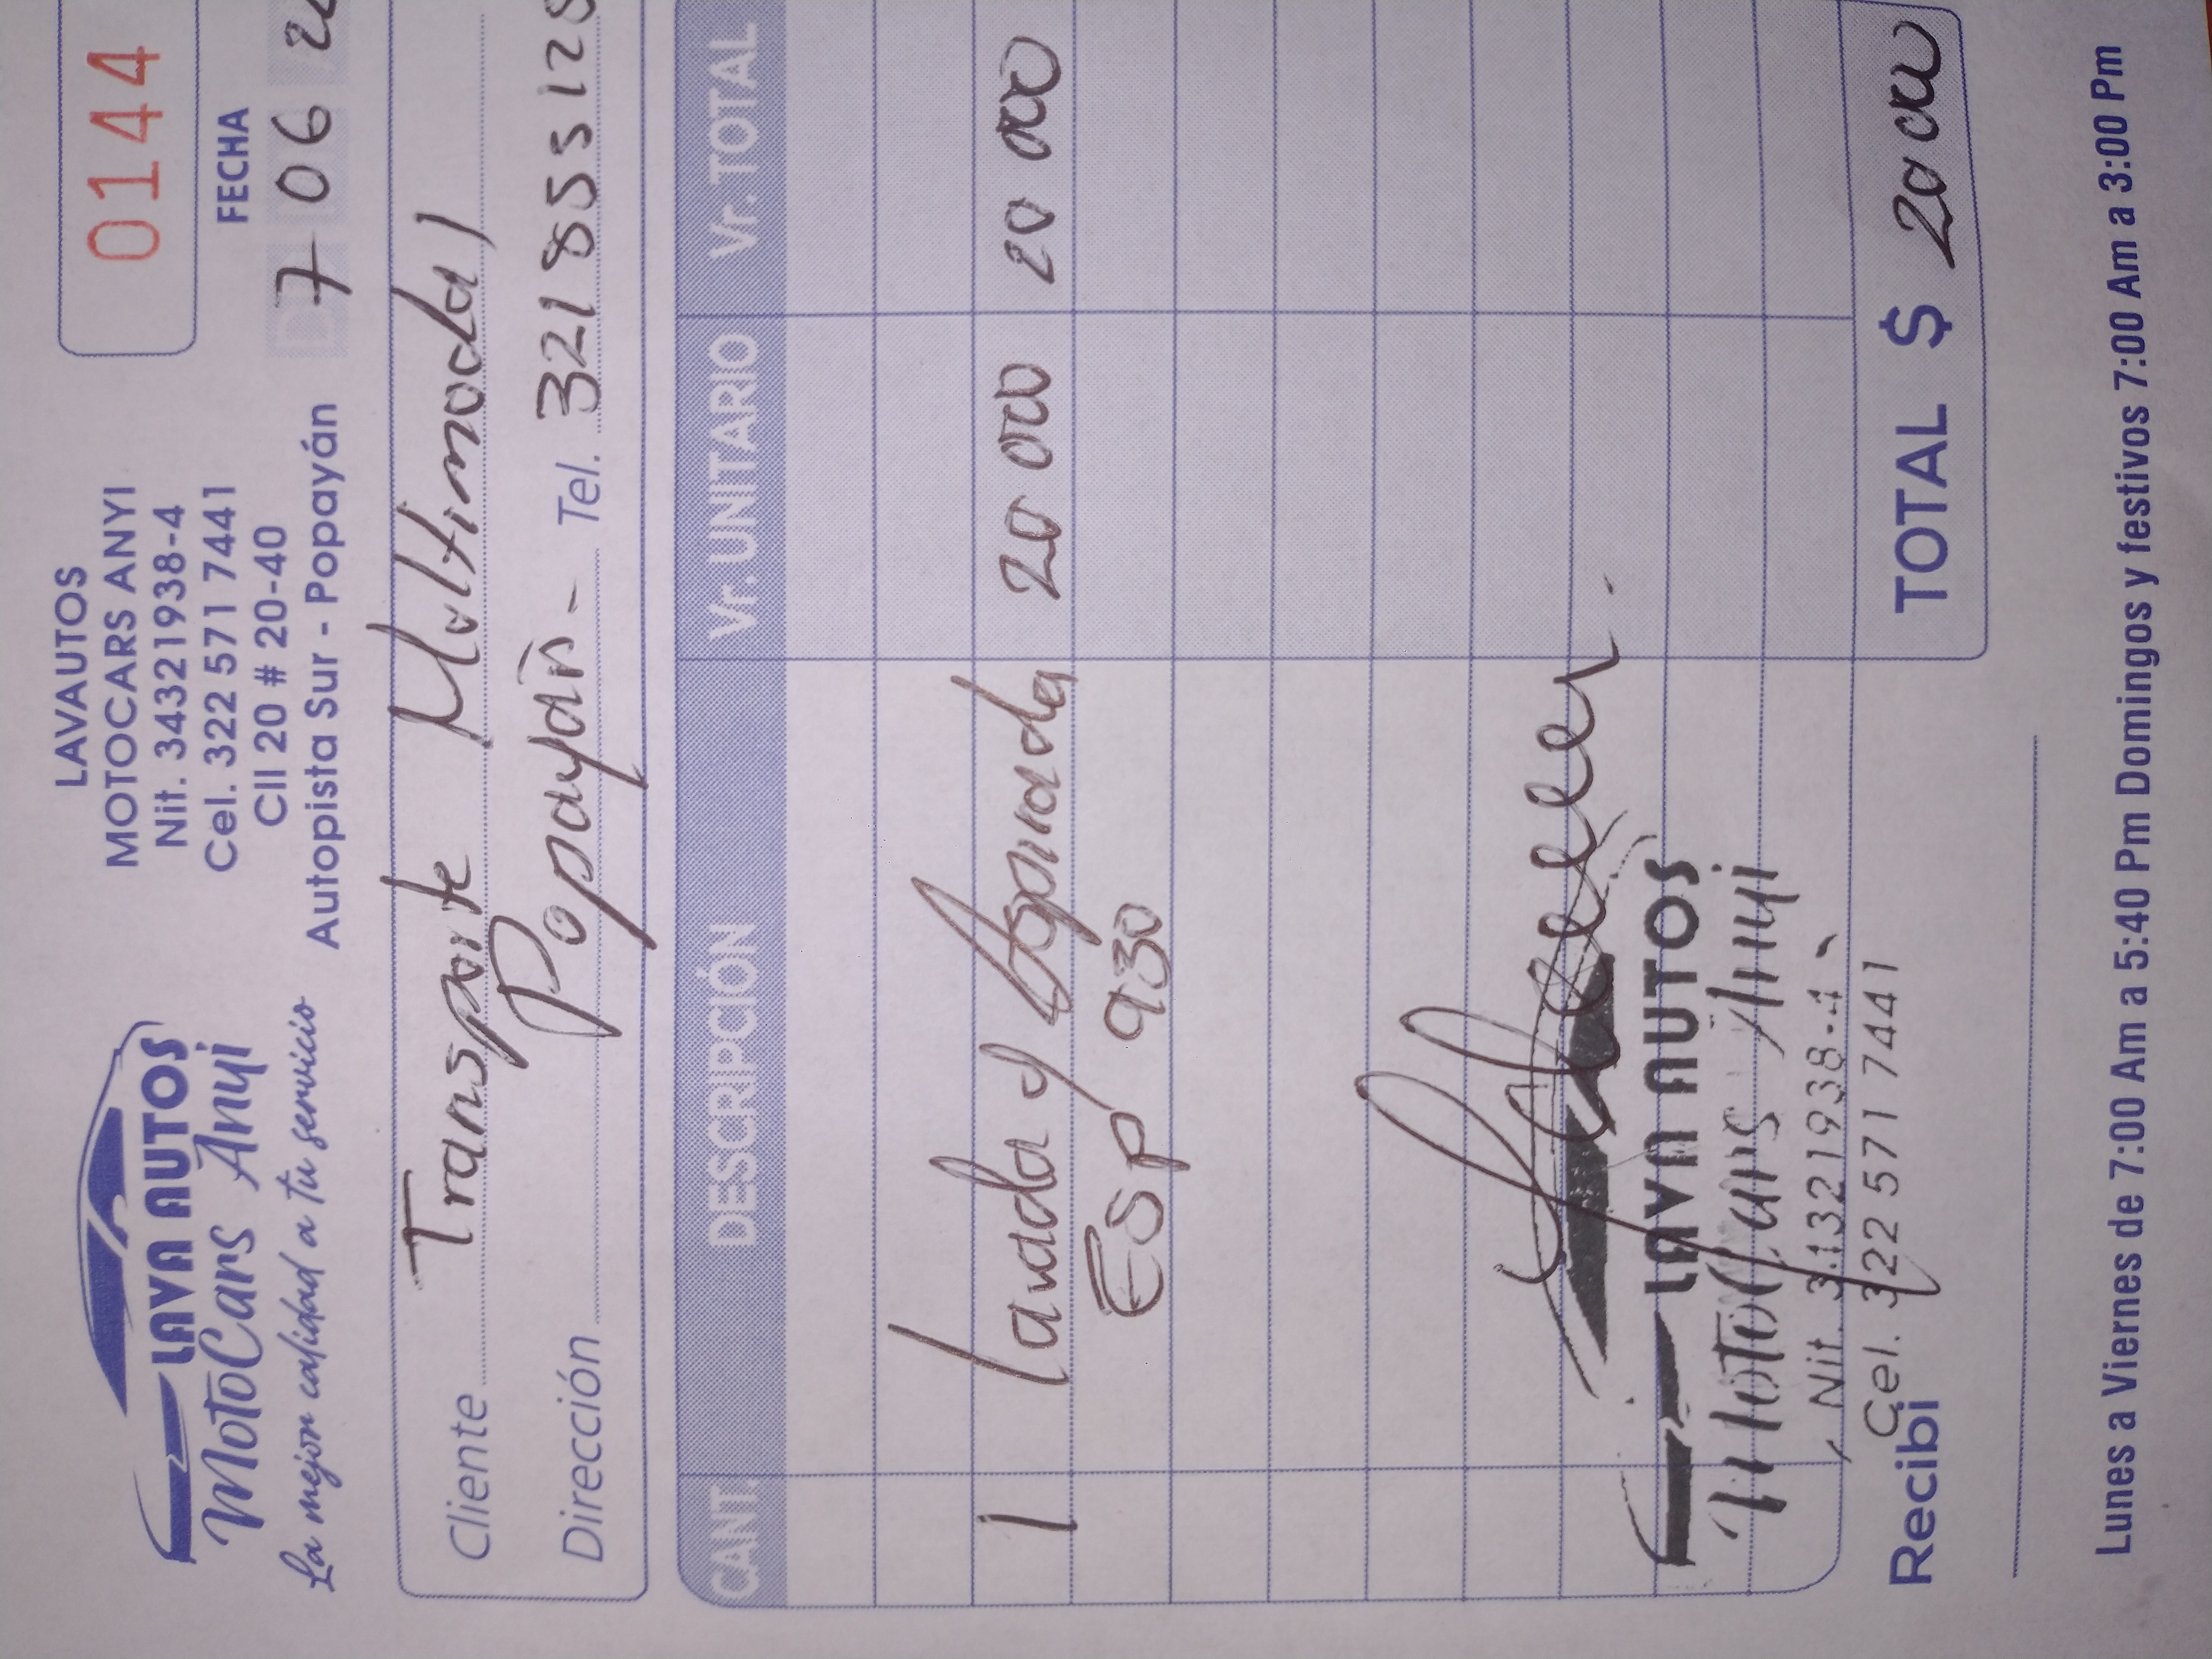 LAVA AUTOS
MotoCars Anyi
La mejor calidad a tu servicio
LAVAUTOS
MOTOCARS ANYI
Nit. 34321938-4
Cel. 322 571 7441
Cll 20 # 20-40
Autopista Sur - Popayán
0144
FECHA
7 06
Cliente Transporte Multimodal
Dirección Popayán - Tel. 321 855 12
CANT. DESCRIPCIÓN Vr. UNITARIO Vr. TOTAL
1 lavada y Aspirada 20 000 20 000
ESP 930
LAVA AUTOS
MotoCars Anyi
Nit. 34321938-4
Cel. 322 571 7441
Recibí
TOTAL $ 20 000
Lunes a Viernes de 7:00 Am a 5:40 Pm Domingos y festivos 7:00 Am a 3:00 Pm